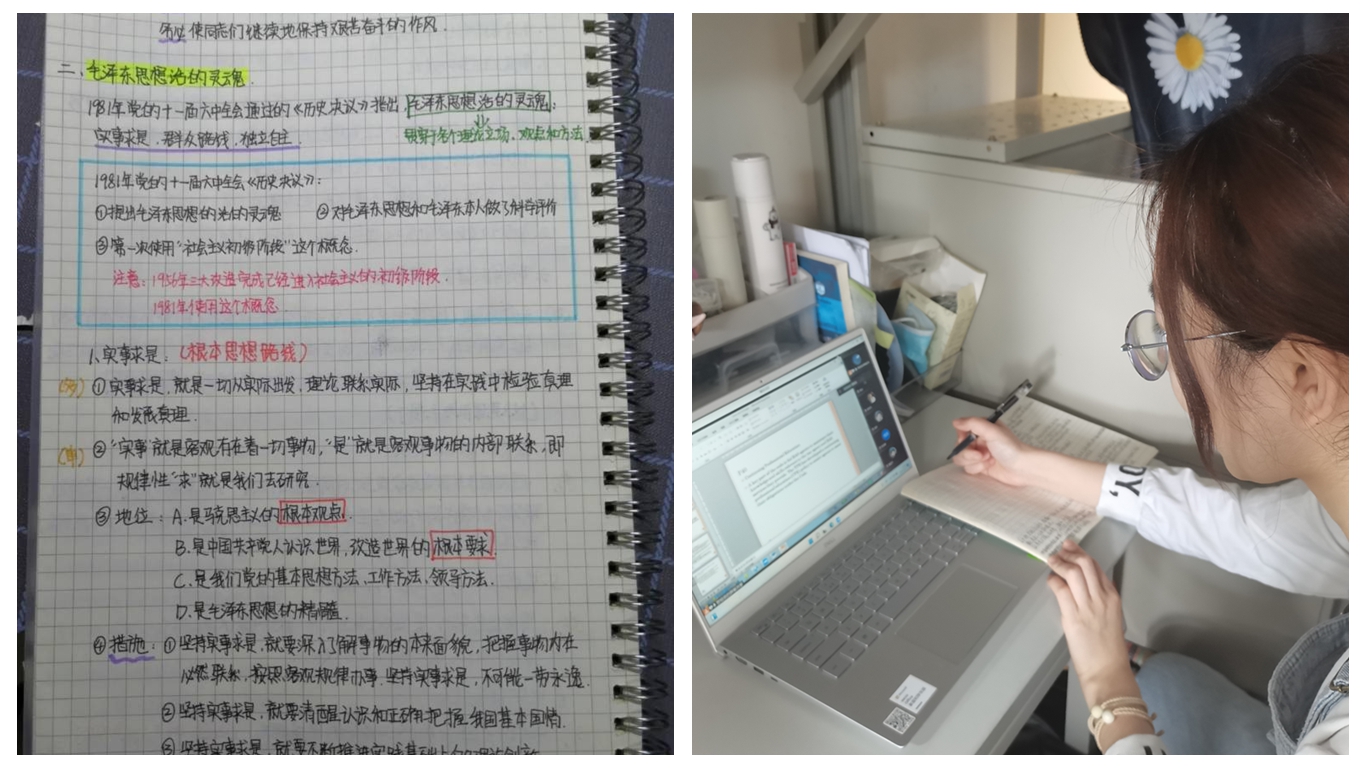 务必使同志们继续地保持艰苦奋斗的作风.
二、毛泽东思想活的灵魂.
1981年党的十一届六中全会通过的《历史决议》指出,毛泽东思想活的灵魂:
实事求是、群众路线、独立自主
贯穿于各个理论立场、观点和方法.
1981年党的十一届六中全会《历史决议》:
①提出毛泽东思想的活的灵魂 ②对毛泽东思想和毛泽东本人做了科学评价
③第一次使用"社会主义初级阶段"这个概念.
注意:1956年三大改造完成已经进入社会主义的初级阶段.
1981年使用这个概念.
1、实事求是:(根本思想路线)
①实事求是,就是一切从实际出发,理论联系实际,坚持在实践中检验真理
和发展真理.
②"实事"就是客观存在着一切事物,"是"就是客观事物的内部联系,即
规律性"求"就是我们去研究.
③地位:A.是马克思主义的根本观点.
B.是中国共产党人认识世界,改造世界的根本要求.
C.是我们党的基本思想方法、工作方法、领导方法.
D.是毛泽东思想的精髓
④措施:①坚持实事求是,就要深入了解事物的本来面貌,把握事物内在
必然联系,按照客观规律办事.坚持实事求是,不可能一劳永逸.
②坚持实事求是,就要清醒认识和正确把握我国基本国情.
③坚持实事求是,就要不断推进实践基础上的理论创新